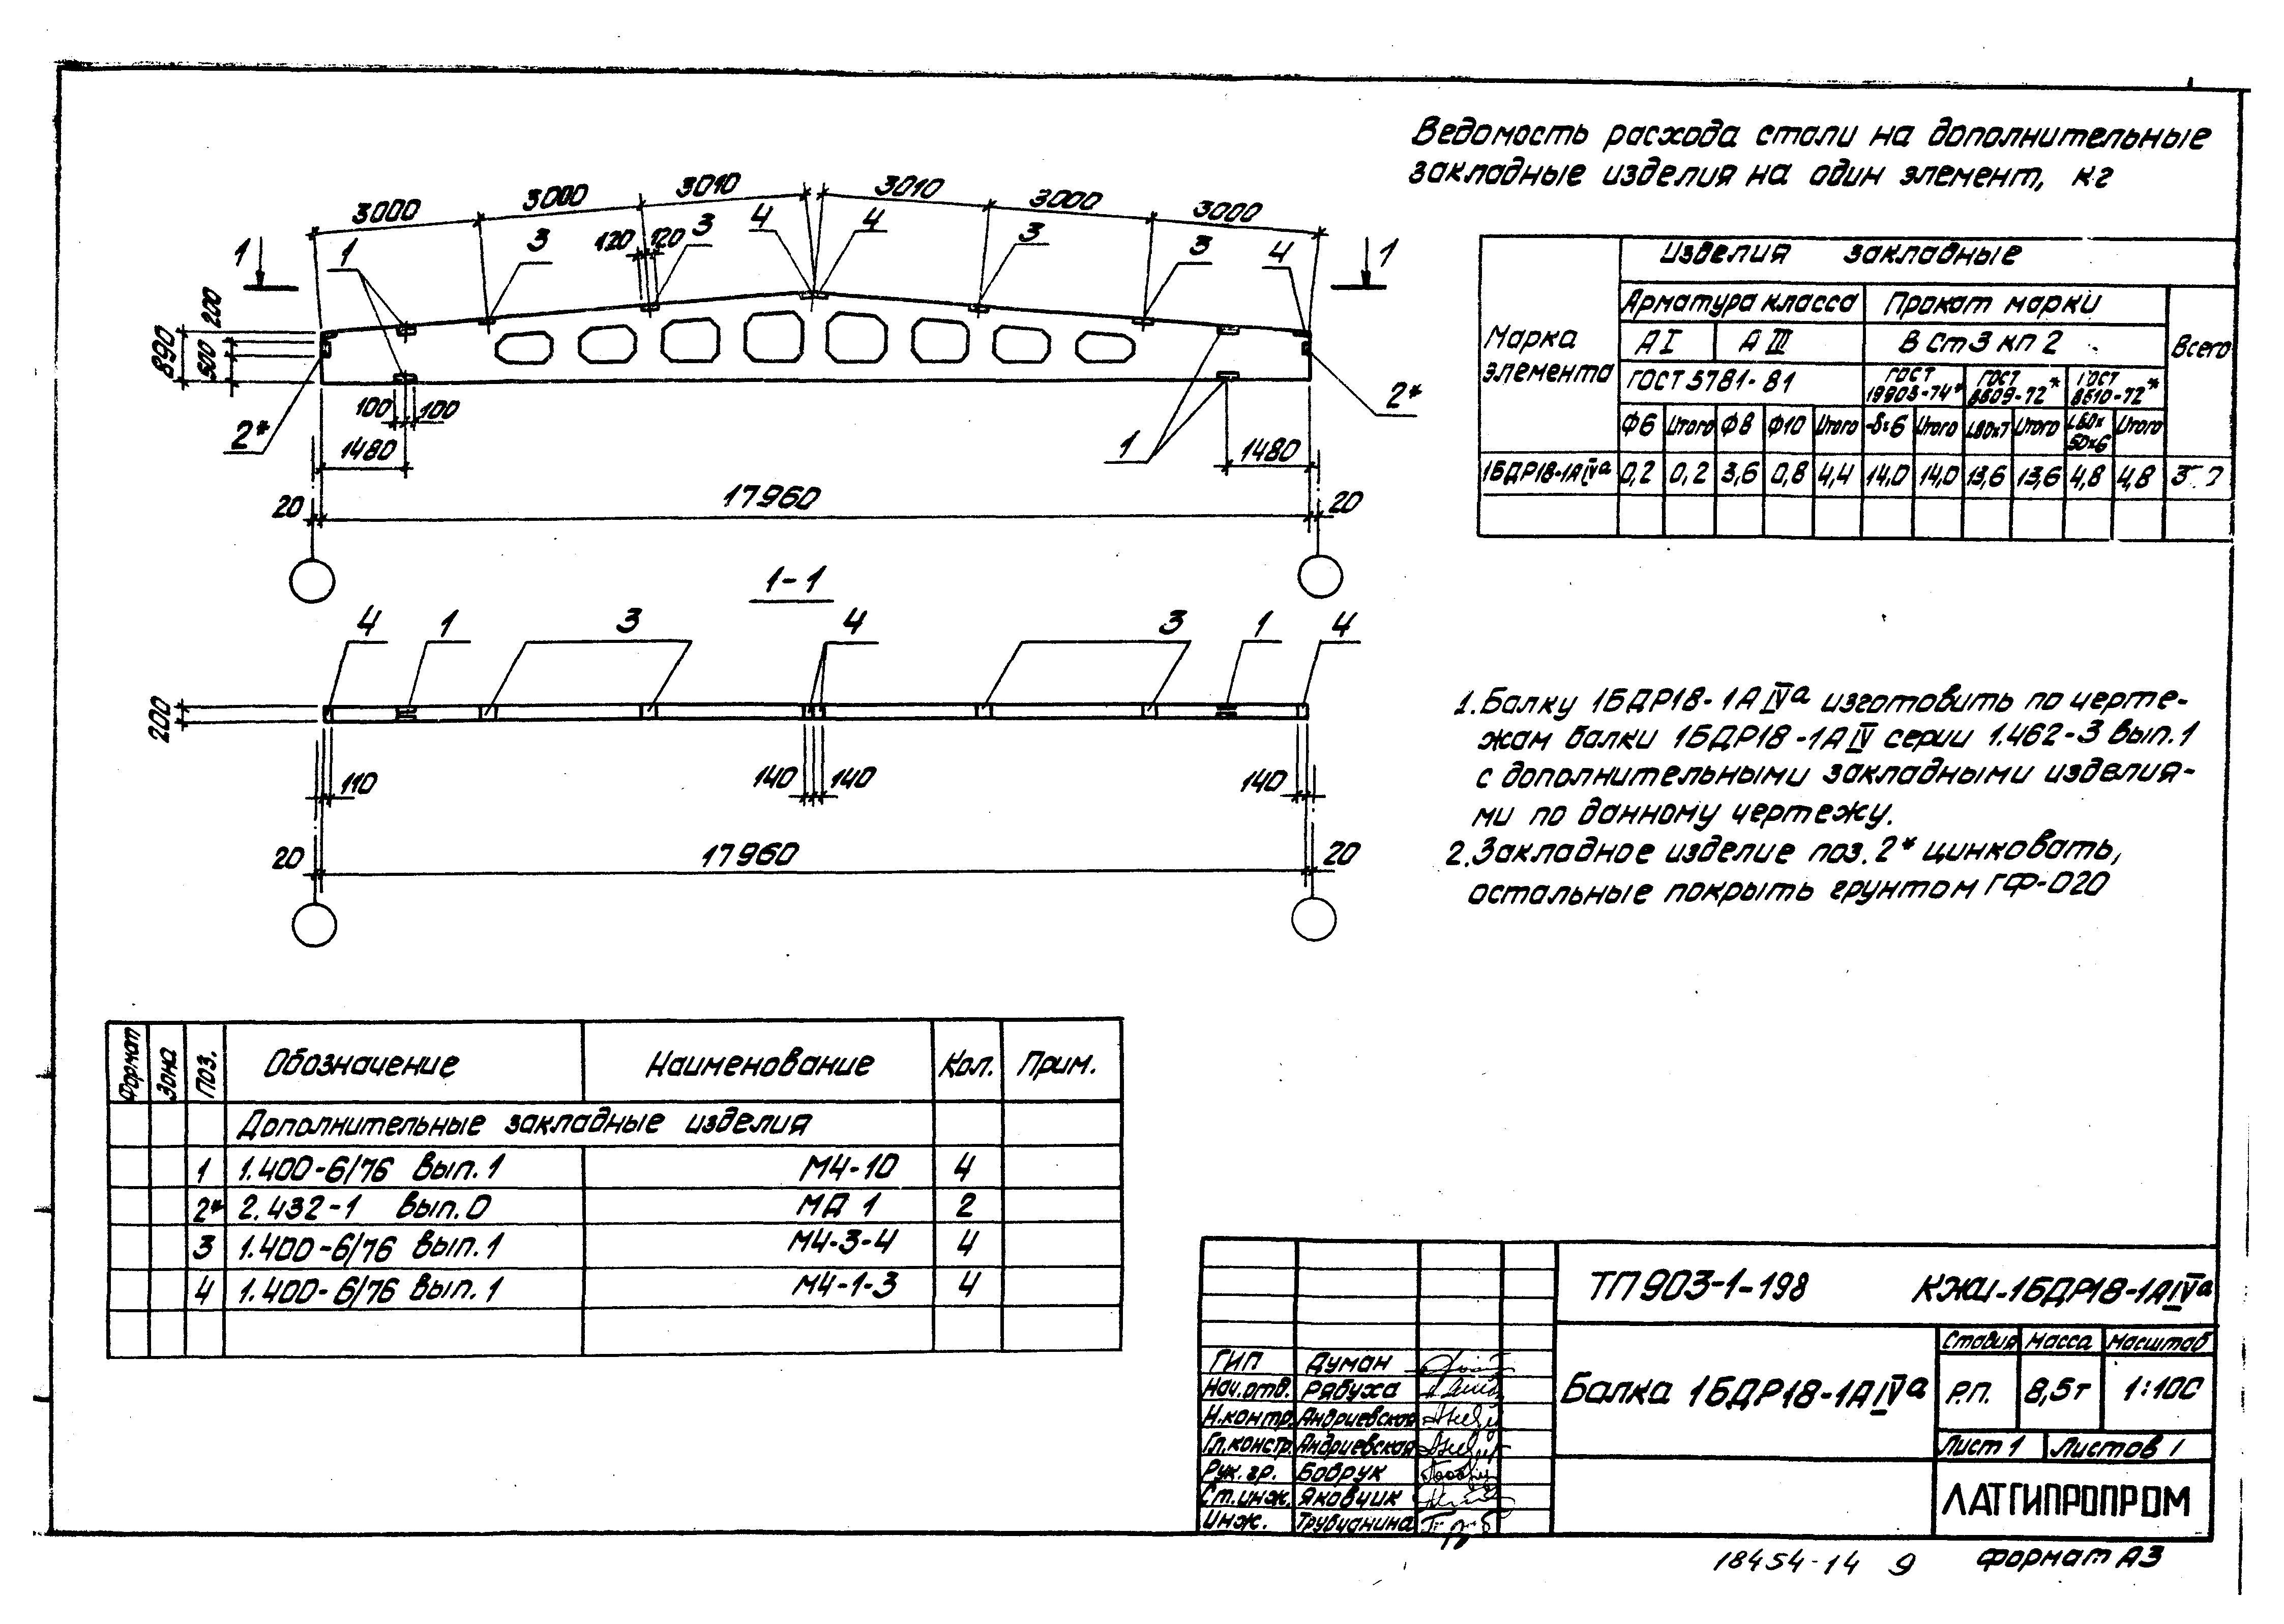 Ведомость расхода стали на дополнительные
закладные изделия на один элемент, кг
3000 3000 3010 3010 3000 3000
1 1 3 120 120 3 4 4 3 3 4 1
890 500 200
2* 100 100 1 2*
1480 1480
20 17960 20
1-1
4 1 3 4 3 1 4
200
110 140 140 140
20 17960 20
Марка элемента
Изделия закладные
Арматура класса Прокат марки Всего
А I А III ВСт3кп2
ГОСТ 5781-81 ГОСТ 19903-74* ГОСТ 8509-72* ГОСТ 8510-72*
Ф6 Итого Ф8 Ф10 Итого -δ=6 Итого L80x7 Итого Итого
1БДР18-1АIVа 0,2 0,2 3,6 0,8 4,4 14,0 14,0 13,6 13,6 4,8 4,8
1. Балку 1БДР18-1АIVа изготовить по черте-
жам балки 1БДР18-1АIV серии 1.462-3 вып.1
с дополнительными закладными изделия-
ми по данному чертежу.
2. Закладное изделие поз. 2* цинковать,
остальные покрыть грунтом ГФ-020
Формат Зона Поз. Обозначение Наименование Кол. Прим.
Дополнительные закладные изделия
1 1.400-6/76 вып.1 М4-10 4
2* 2.432-1 вып.0 МД 1 2
3 1.400-6/76 вып.1 М4-3-4 4
4 1.400-6/76 вып.1 М4-1-3 4
ТП 903-1-198 КЖИ-1БДР18-1АIVа
Балка 1БДР18-1АIVа
Стадия Масса Масштаб
Р.П. 8,5т 1:100
Лист 1 Листов 1
ЛАТГИПРОПРОМ
ГИП Думан
Нач.отд. Рябуха
Н.контр. Андриевская
Гл.констр. Андриевская
Рук.гр. Бобрук
Ст.инж. Яковчик
Инж. Трубчанина
18454-14 9
Формат А3